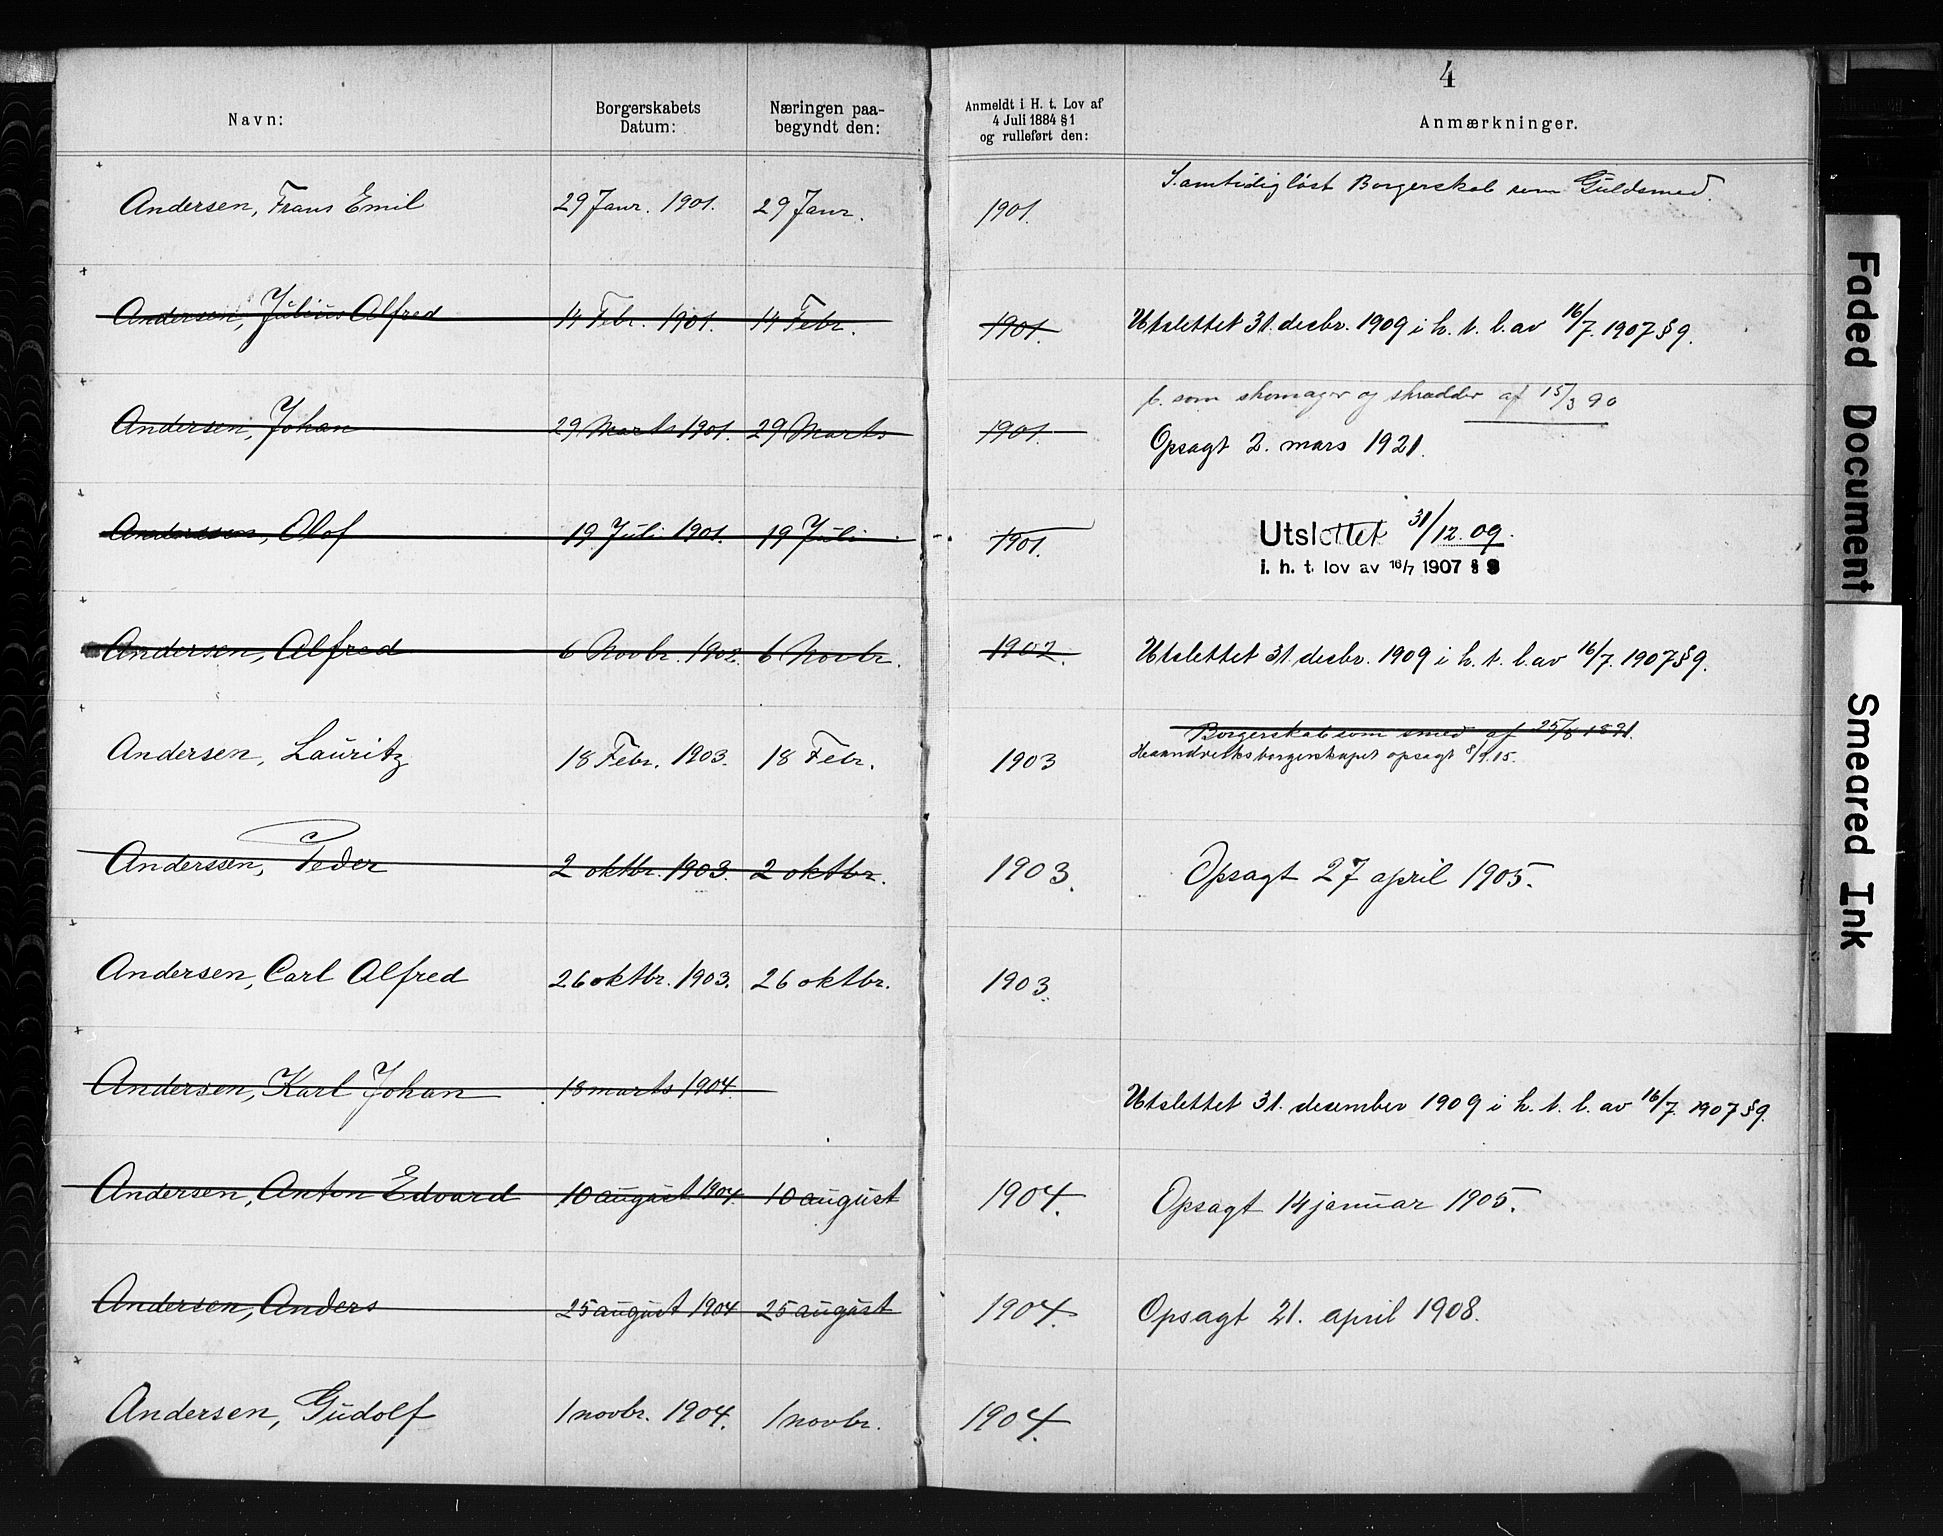 4
Navn:
Borgerskabets Datum:
Næringen paa-begyndt den:
Anmeldt i H. t. Lov af 4 Juli 1884 § 1 og rulleført den:
Anmærkninger.
Andersen, Frans Emil 29 Janr. 1901. 29 Janr. 1901. Samtidig løst Borgerskab som Guldsmed.
Andersen, Julius Alfred 14 Febr. 1901. 14 Febr. 1901. Utslettet 31. desbr. 1909 i h. t. l. av 16/7. 1907 § 9.
b. som skomager og skrædder af 15/3 90
Andersen, Johan 29 Marts 1901. 29 Marts 1901. Opsagt 2. mars 1921.
Anderssen, Olof 19 Juli 1901. 19 Juli 1901. Utslettet 31/12. 09.
i. h. t. lov av 16/7 1907 § 9
Andersen, Alfred 6 Novbr. 1902. 6 Novbr. 1902. Utslettet 31. desbr. 1909 i h. t. l. av 16/7. 1907 § 9.
Borgerskab som smed af 25/8 1891.
Andersen, Lauritz 18 Febr. 1903. 18 Febr. 1903 Haandverksborgerskapet opsagt 8/9.15.
Anderssen, Peder 2 oktbr. 1903. 2 oktbr. 1903. Opsagt 27 april 1905.
Andersen, Carl Alfred 26 oktbr. 1903. 26 oktbr. 1903.
Andersen, Karl Johan 18 marts 1904. Utslettet 31. desember 1909 i h. t. l. av 16/7. 1907 § 9.
Andersen, Anton Edvard 10 august 1904. 10 august 1904. Opsagt 14 januar 1905.
Andersen, Anders 25 august 1904 25 august 1904. Opsagt 21. april 1908.
Andersen, Gudolf 1 novbr. 1904. 1 novbr. 1904.
Faded Document
Smeared Ink